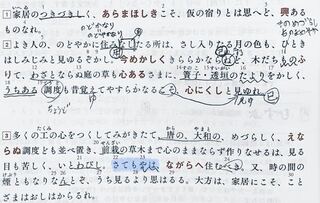 1 家居のつきづきしく、あらまほしきこそ、仮の宿りとは思へど、興あ
るものなれ。
2 よき人の、のどやかに住みなしたる所は、さし入りたる月の色も、ひと
きはしみじみと見ゆるぞかし。今めかしくきららかならねど、木だちものふ
りて、わざとならぬ庭の草も心あるさまに、簀子・透垣のたよりをかしく、
うちある調度も昔覚えてやすらかなるこそ、心にくしと見ゆれ。
ちょうど
3 多くの工の心をつくしてみがきたて、唐の、大和の、めづらしく、えな
らぬ調度ども並べ置き、前栽の草木まで心のままならず作りなせるは、見る
目も苦しく、いとわびし。さてもやは、ながらへ住むべき。又、時の間の
煙ともなりなんとぞ、うち見るより思はるる。大方は、家居にこそ、こと
ざまはおしはからるれ。